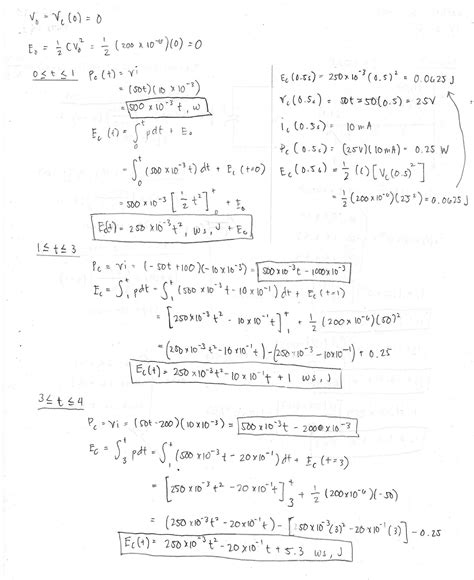 V₀ = V_c(0) = 0
E₀ = 1/2 CV₀² = 1/2 (200 x 10⁻⁶)(0) = 0
0 ≤ t ≤ 1 P_c(t) = vi
= (50t)(10 x 10⁻³)
= 500 x 10⁻³ t, W
E_c(t) = ∫₀ᵗ pdt + E₀
= ∫₀ᵗ (500 x 10⁻³ t) dt + E_c(t=0)
= 500 x 10⁻³ [1/2 t²]₀ᵗ + E₀
E_c(t) = 250 x 10⁻³ t², ws, J + E₀
E_c(0.5s) = 250 x 10⁻³ (0.5)² = 0.0625 J
V_c(0.5s) = 50t = 50(0.5) = 25V
i_c(0.5s) = 10 mA
P_c(0.5s) = (25V)(10mA) = 0.25 W
E_c(0.5s) = 1/2 (C)[V_c(0.5)²]
= 1/2 (200 x 10⁻⁶)(25²) = 0.0625 J
1 ≤ t ≤ 3
P_c = vi = (-50t+100)(-10 x 10⁻³) = 500 x 10⁻³ t - 1000 x 10⁻³
E_c = ∫₁ᵗ pdt = ∫₁ᵗ (500 x 10⁻³ t - 10 x 10⁻¹) dt + E_c(t=1)
= [250 x 10⁻³ t² - 10 x 10⁻¹ t]₁ᵗ + 1/2 (200 x 10⁻⁶)(50)²
= (250 x 10⁻³ t² - 10 x 10⁻¹ t) - (250 x 10⁻³ - 10 x 10⁻¹) + 0.25
E_c(t) = 250 x 10⁻³ t² - 10 x 10⁻¹ t + 1 ws, J
3 ≤ t ≤ 4
P_c = vi = (50t - 200)(10 x 10⁻³) = 500 x 10⁻³ t - 2000 x 10⁻³
E_c = ∫₃ᵗ pdt = ∫₁ᵗ (500 x 10⁻³ t - 20 x 10⁻¹) dt + E_c(t=3)
= [250 x 10⁻³ t² - 20 x 10⁻¹ t]₃⁺ + 1/2 (200 x 10⁻⁶)(-50)
= (250 x 10⁻³ t² - 20 x 10⁻¹ t) - [250 x 10⁻³ (3)² - 20 x 10⁻¹ (3)] - 0.25
E_c(t) = 250 x 10⁻³ t² - 20 x 10⁻¹ t + 5.3 ws, J